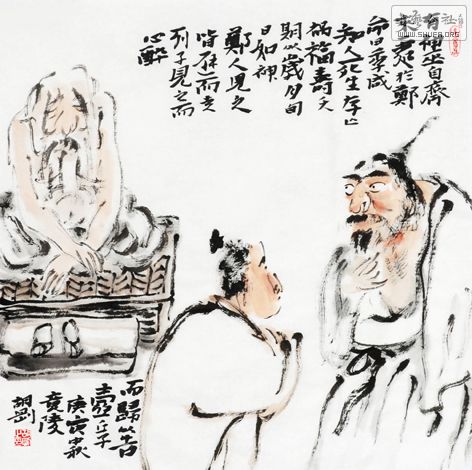 有神巫自齊
來處於鄭
命曰季咸
知人死生存亡
禍福壽夭
期以歲月旬
日如神
鄭人見之
皆避而走
列子見之而
心醉
而歸以告
壺丘子
庚寅中秋
竟陵